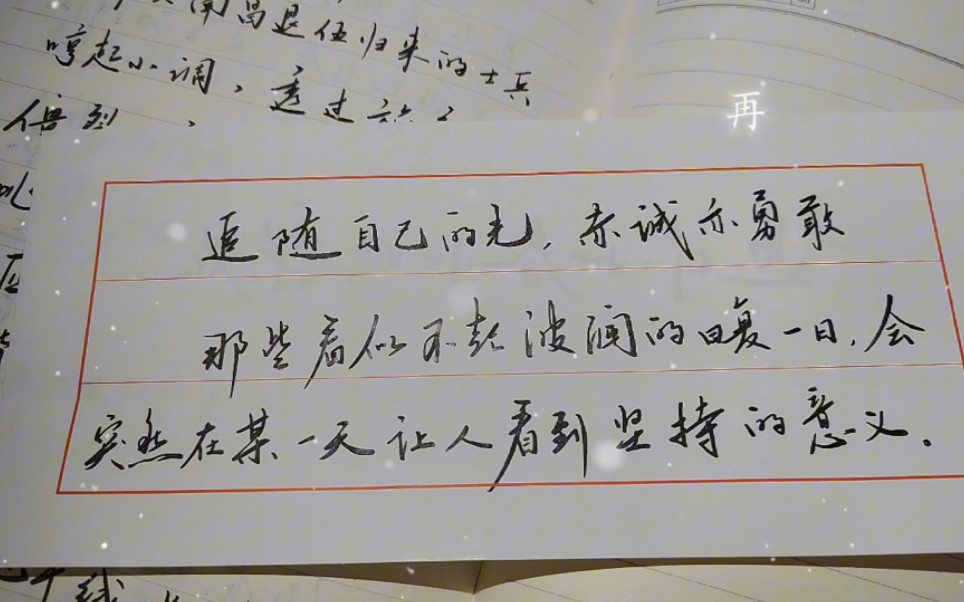 南昌退伍归来的士兵
哼起小调，透过
得到
再
追随自己的光，赤诚亦勇敢
那些看似不起波澜的日复一日，会
突然在某一天让人看到坚持的意义。
线